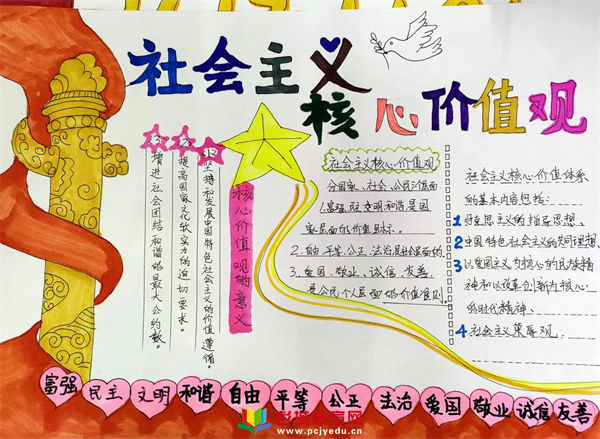 社会主义
核心价值观
核心价值观的意义
1 坚持和发展中国特色社会主义的价值遵循。
2 提高国家文化软实力的迫切要求。
3 增进社会团结和谐的最大公约数。
社会主义核心价值观
分国家、社会、公民三个层面
1.富强、民主、文明、和谐是国
家层面的价值目标。
2.自由、平等、公正、法治是社会层面的
3.爱国、敬业、诚信、友善
是公民个人层面的价值准则
社会主义核心价值体系
的基本内容包括:
1 马克思主义的指导思想、
2 中国特色社会主义的共同理想、
3 以爱国主义为核心的民族精
神和以改革创新为核心
的时代精神、
4 社会主义荣辱观.
富强 民主 文明 和谐 自由 平等 公正 法治 爱国 敬业 诚信 友善
www.pcjyedu.cn